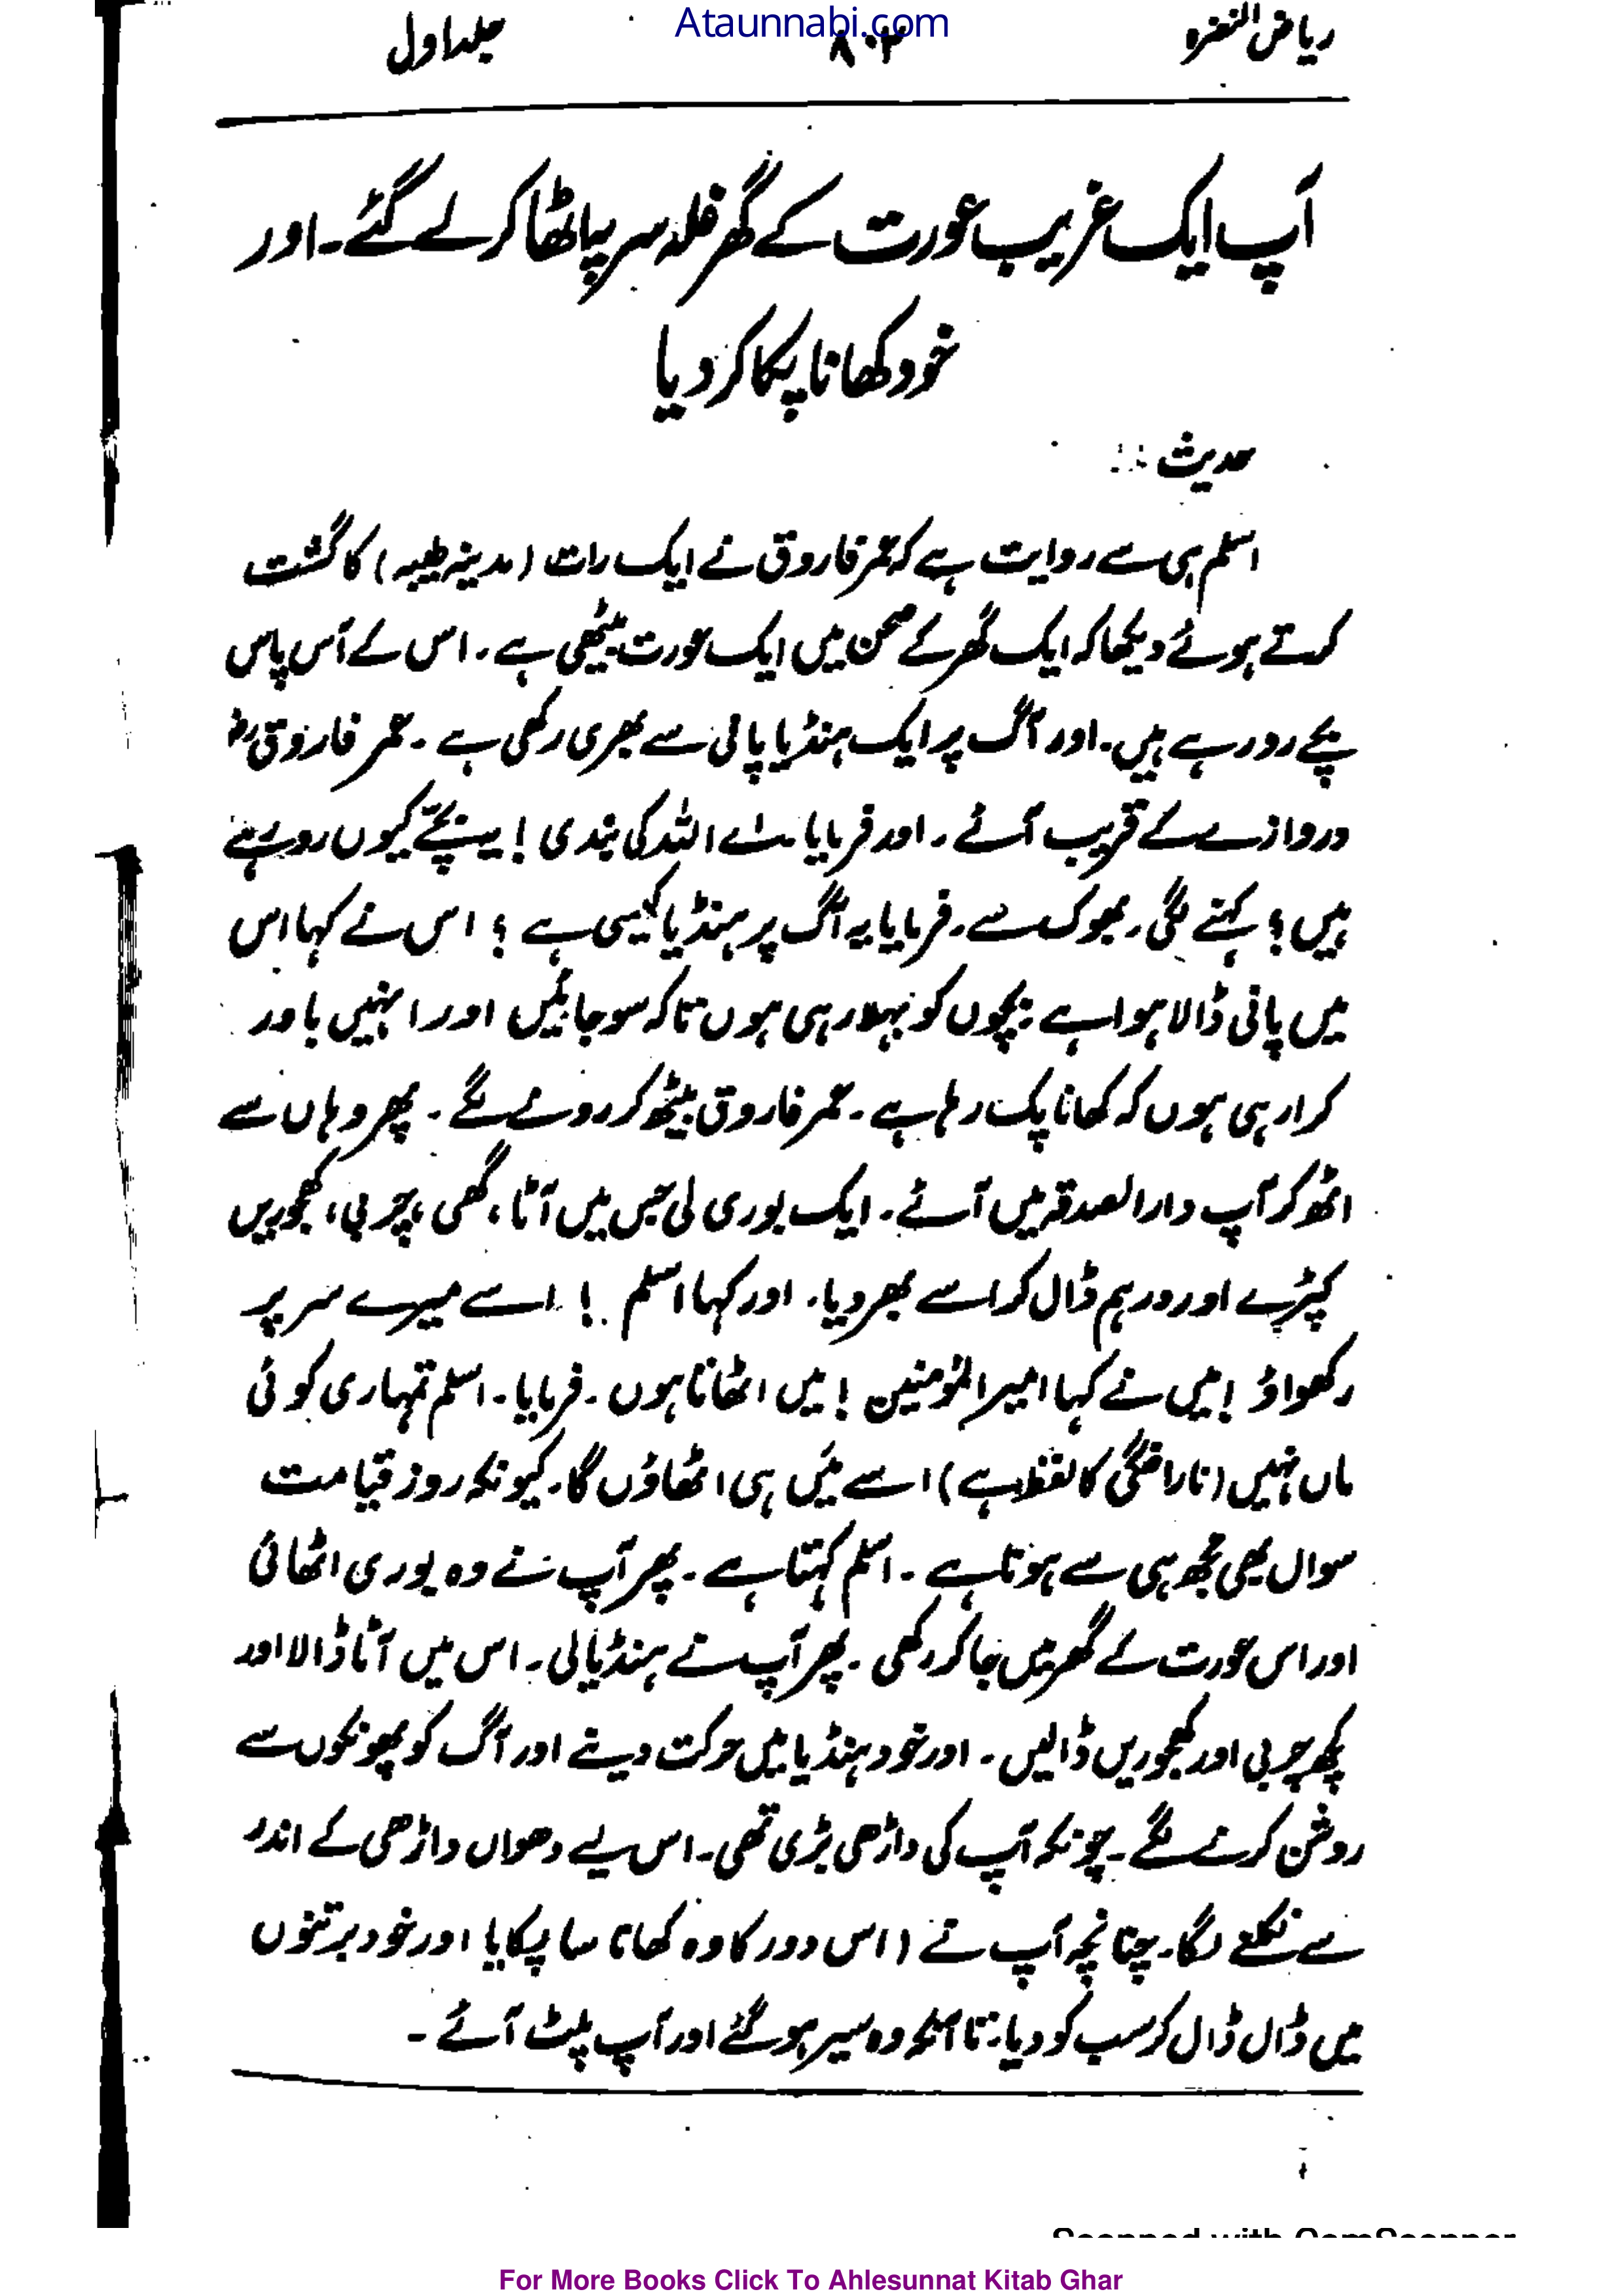 Ataunnabi.com
ریاض النضرہ ۸۰۲ جلد اول
آپ ایک غریب عورت کے گھر غلہ سر پہ اٹھا کر لے گئے۔ اور
خود کھانا پکا کر دیا
حدیث :
اسلم ہی سے روایت ہے کہ عمر فاروق نے ایک رات (مدینہ طیبہ) کا گشت
کرتے ہوئے دیکھا کہ ایک گھر کے صحن میں ایک عورت بیٹھی ہے۔ اس کے آس پاس
بچے رو رہے ہیں۔ اور آگ پر ایک ہنڈیا پانی سے بھری رکھی ہے۔ عمر فاروق رض
دروازے کے قریب آئے۔ اور فرمایا اے اللہ کی بندی! یہ بچے کیوں رو رہے
ہیں؟ کہنے لگی۔ بھوک سے۔ فرمایا یہ آگ پر ہنڈیا کیسی ہے؟ اس نے کہا اس
میں پانی ڈالا ہوا ہے بچوں کو بہلا رہی ہوں تاکہ سو جائیں اور انہیں باور
کرا رہی ہوں کہ کھانا پک رہا ہے۔ عمر فاروق بیٹھ کر رونے لگے۔ پھر وہاں سے
اٹھ کر آپ دار الصدقہ میں آئے۔ ایک بوری لی جس میں آٹا، گھی، چربی، کھجوریں
کپڑے اور درہم ڈال کر اسے بھر دیا۔ اور کہا اسلم! اسے میرے سر پر
رکھواؤ! میں نے کہا امیر المؤمنین! میں اٹھاتا ہوں۔ فرمایا۔ اسلم تمہاری کوئی
ماں نہیں (ناراضگی کا لفظ ہے) اسے میَں ہی اٹھاؤں گا۔ کیونکہ روز قیامت
سوال بھی مجھ ہی سے ہونا ہے۔ اسلم کہتا ہے۔ پھر آپ نے وہ بوری اٹھائی
اور اس عورت کے گھر میں جا کر رکھی۔ پھر آپ نے ہنڈیا لی۔ اس میں آٹا ڈالا اور
کچھ چربی اور کھجوریں ڈالیں۔ اور خود ہنڈیا میں حرکت دینے اور آگ کو پھونکوں سے
روشن کرنے لگے۔ چونکہ آپ کی داڑھی بڑی تھی۔ اس لیے دھواں داڑھی کے اندر
سے نکلنے لگا۔ چنانچہ آپ نے (اس دور کا وہ کھانا سا پکایا اور خود برتنوں
میں ڈال ڈال کر سب کو دیا۔ تا آنکہ وہ سیر ہو گئے اور آپ پلٹ آئے۔
Scanned with CamScanner
For More Books Click To Ahlesunnat Kitab Ghar